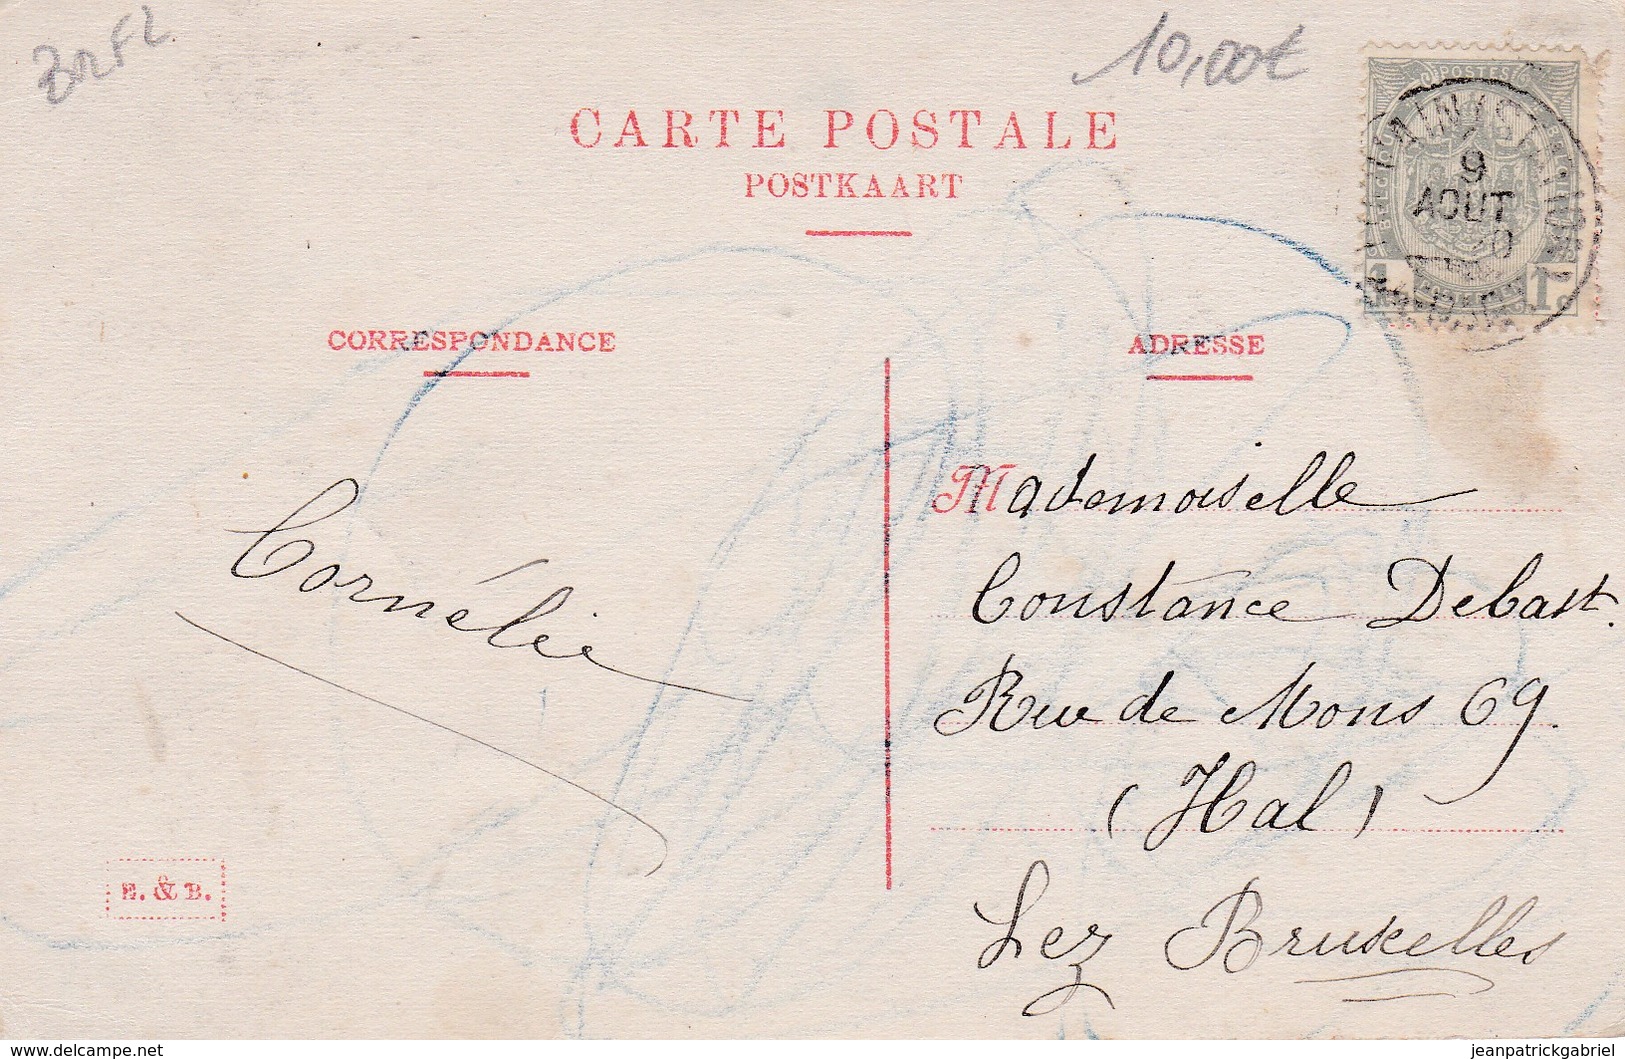 10,00€
CARTE POSTALE
POSTKAART
POSTES
9
AOUT
1 1c
CORRESPONDANCE
ADRESSE
Mademoiselle
Constance Debast.
Rue de Mons 69.
(Hal)
Lez Bruxelles
Cornélie
E. & B.
www.delcampe.net
jeanpatrickgabriel